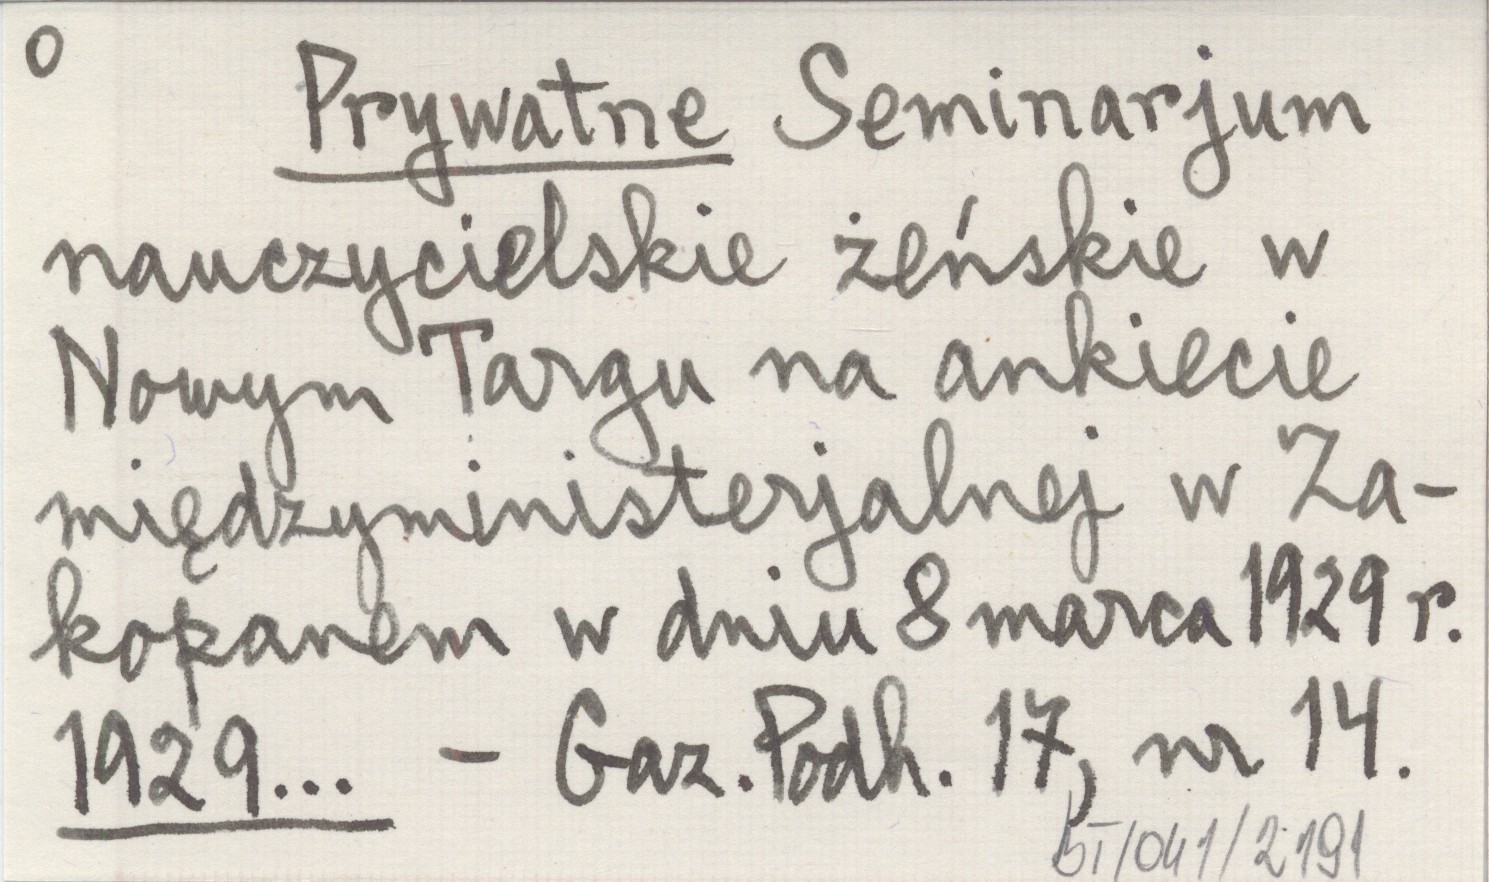 o
Prywatne Seminarjum
nauczycielskie żeńskie w
Nowym Targu na ankiecie
międzyministerjalnej w Za-
kopanem w dniu 8 marca 1929 r.
1929... – Gaz. Podh. 17, nr 14.
bT/041/2191